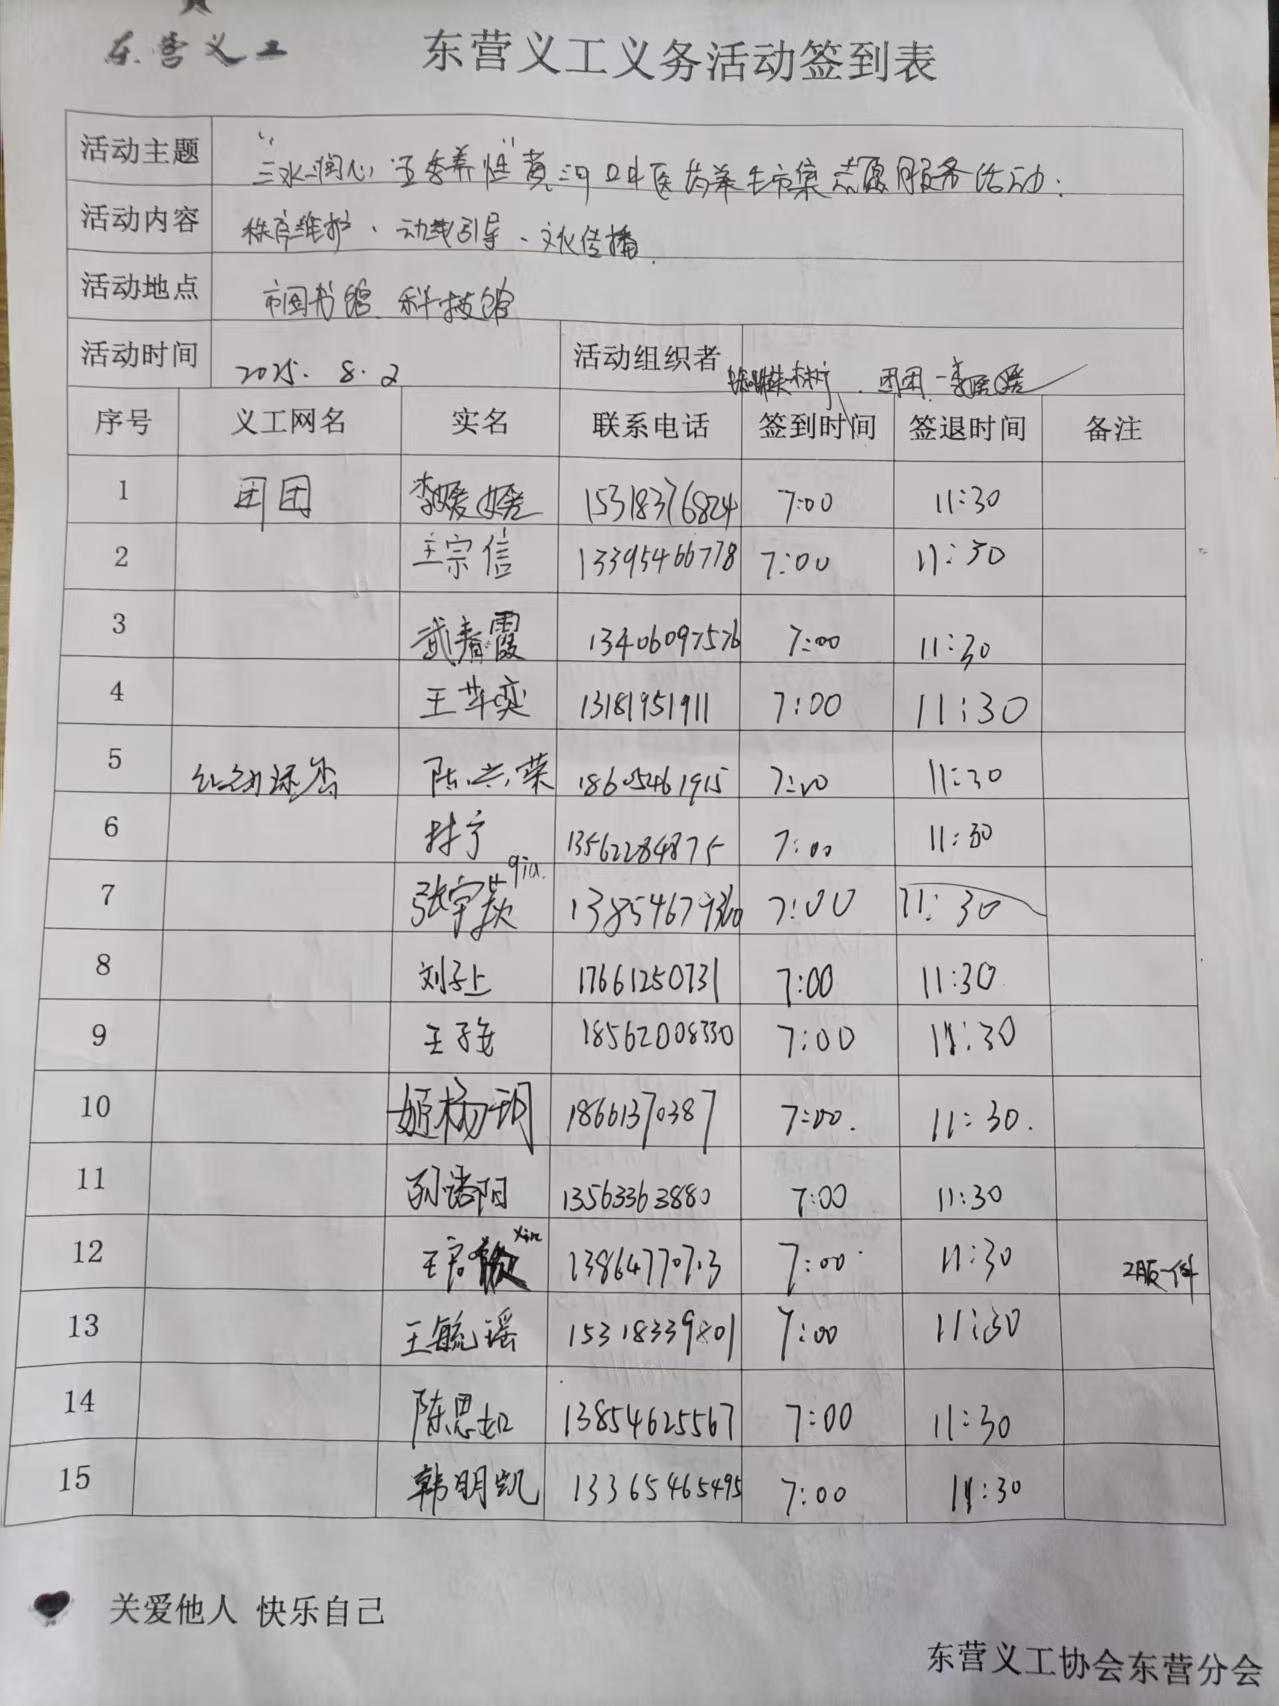 东营义工
东营义工义务活动签到表
活动主题 "三水润心 五季养性"黄河口中医药养生市集志愿服务活动.
活动内容 秩序维护、动线引导、文化传播.
活动地点 市图书馆 科技馆
活动时间 2025.8.2 活动组织者 团团-李媛媛
序号 义工网名 实名 联系电话 签到时间 签退时间 备注
1 团团 李媛媛 15318376824 7:00 11:30
2 王宗信 13395466778 7:00 11:30
3 武春霞 13406097576 7:00 11:30
4 王苹奕 13181951911 7:00 11:30
5 陈兴荣 18605461915 7:00 11:30
6 林宁 13562284875 7:00 11:30
7 张宇 qiu. 7:00 11:30
8 刘子上 17661250731 7:00 11:30
9 王子 18562008330 7:00 11:30
10 姬杨玥 18661370387 7:00. 11:30.
11 孙诺阳 13563363880 7:00 11:30
12 王 xin 7:00 11:30 2服一件
13 王毓瑶 15318339801 7:00 11:30
14 陈思如 13854625567 7:00 11:30
15 韩明凯 13365465495 7:00 11:30
关爱他人 快乐自己
东营义工协会东营分会